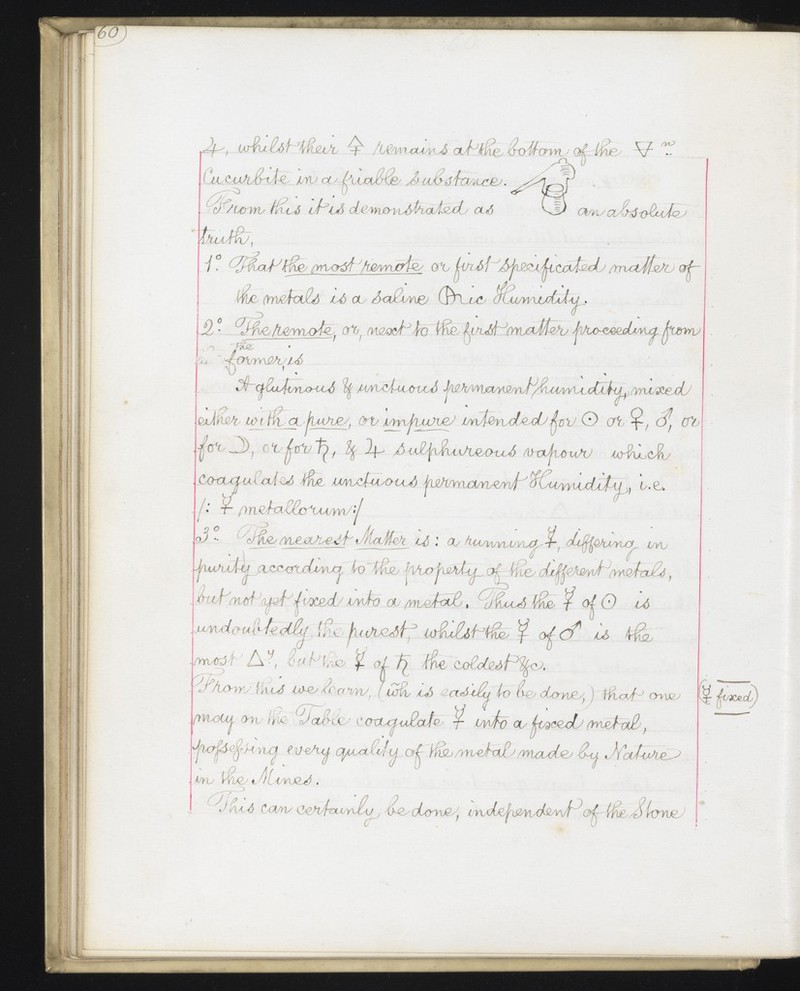 60
♃, whilst their 🜍 remains at the bottom of the 🜃n.
Cucurbite in a friable substance.
From this it is demonstrated as an absolute
truth,
1o. That the most remote or first specificated matter of
the metals is a saline ic Humidity.
2o. The remote, or, next to the first matter proceeding from
the
former, is
A glutinous & unctuous permanent humidity, mixed
either with a pure, or impure intended for ☉ or ♀, ♂, or
for ☽, or for ♄, & ♃ sulphureous vapour which
coagulates the unctuous permanent Humidity, i.e.
/: ☿ metallorum :/
3o. The nearest Matter is: a running ☿, differing in
purity according to the property of the different metals,
but not yet fixed into a metal. Thus the ☿ of ☉ is
undoubtedly the purest, whilst the ☿ of ♂ is the
most 🜂y, but the ☿ of ♄ the coldest &c.
From this we learn, (wh̃ is easily to be done,) that one
(☿ fixed)
may on the Table coagulate ☿ into a fixed metal,
pofsefsing every quality of the metal made by Nature
in the Mines.
This can certainly be done, independent of the Stone